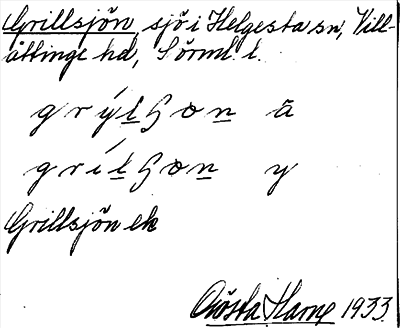 Grillsjön, sjö i Helgesta sn, Vill-
åttinge hd, Sörml. l.
grýlʃon ä
grílʃon y
Grillsjön ek
Gösta Harne 1933.